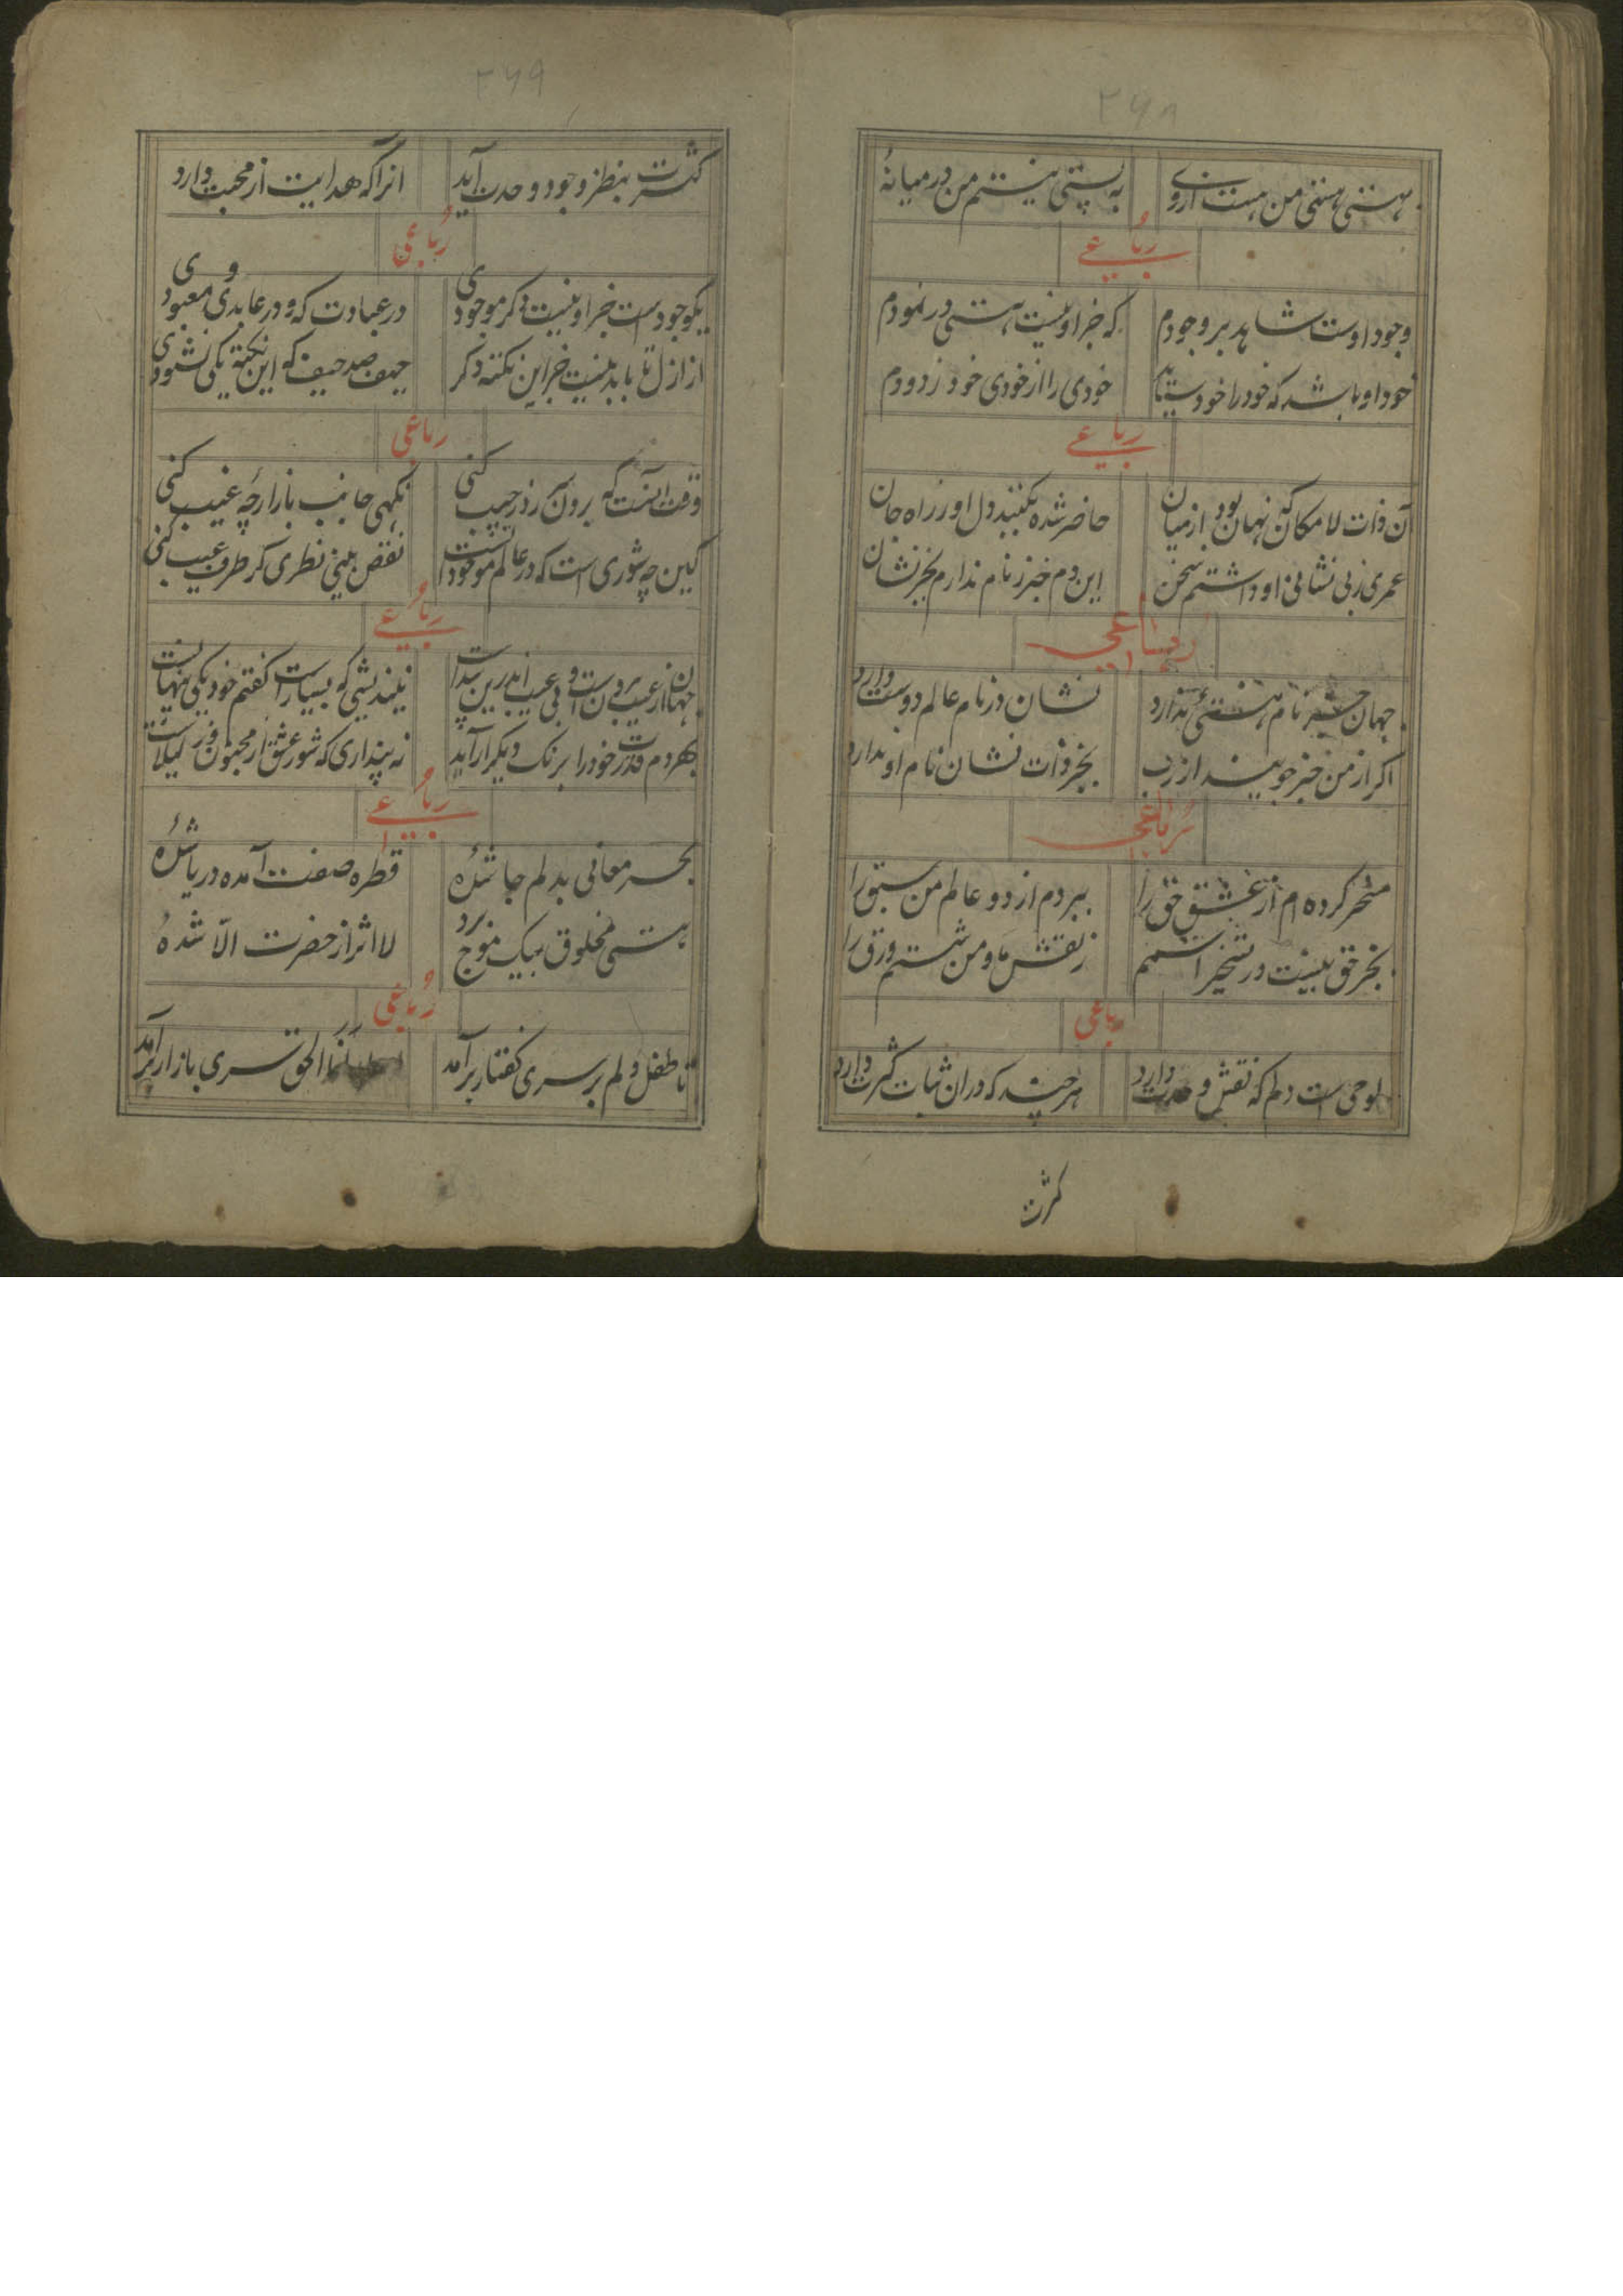 ۲۶۸
هستی هستی من هست ازوی به پستی نیستم من در میانهٔ
رباعی
وجود اوست شاهد بر وجودم که جز او نیست هستی در نمودم
خود او باشد که خود را خود ستاید خودی را از خودی خود زدودم
رباعی
آن ذات لامکان که نهان بود از میان حاضر شده بگنبد دل او ز راه جان
عمری ز بی نشانی او داشتم سخن این دم خبر ز نام ندارم بجز نشان
رباعی
جهان جز نام هستی ندارد نشان در نام عالم دوست دارد
اگر از من خبر جویند از رب بجز ذات نشان نام او ندارد
رباعی
مسخر کرده ام از عشق حق را ببردم از دو عالم من سبق را
بجز حق نیست در تسخیر اسمم ز نقش ما و من شستم ورق را
رباعی
لوحی است دلم که نقش وحدت دارد هر چند که در آن ثبات کثرت دارد
کثرت
۲۶۹
کثرت بنظر وجود وحدت آید انرا که هدایت از محبت دارد
رباعی
یکوجود است جز او نیست دگر موجودی در عبادت که و در عابدی و معبودی
از ازل تا بابد نیست جز این نکته دگر حیف صد حیف که این نکته یکی نشنودی
رباعی
وقت انست که برون آن رز جیب کنی نگهی جانب بازارچهٔ غیب کنی
کین چه شوری است که در عالم موجود است نقص بینی نظری گر طرف عیب کنی
رباعی
جهان از عیب بیرون است و بی عیب اندرین پیداست نیندیشی که بسیار است گفتم خود یکی پنهانست
بهر دم قدرت خود را برنگ دیگر آراید نه پنداری که شور عشق از مجنون و ز لیلاست
رباعی
بحر معانی بدلم جا شدهٔ قطره صفت آمده دریا شدهٔ
هستی مخلوق بیک موج برد لا اثر از حضرت الا شدهٔ
رباعی
تا طفل دلم بر سری گفتار برآمد انا الحق سری بازار برآمد